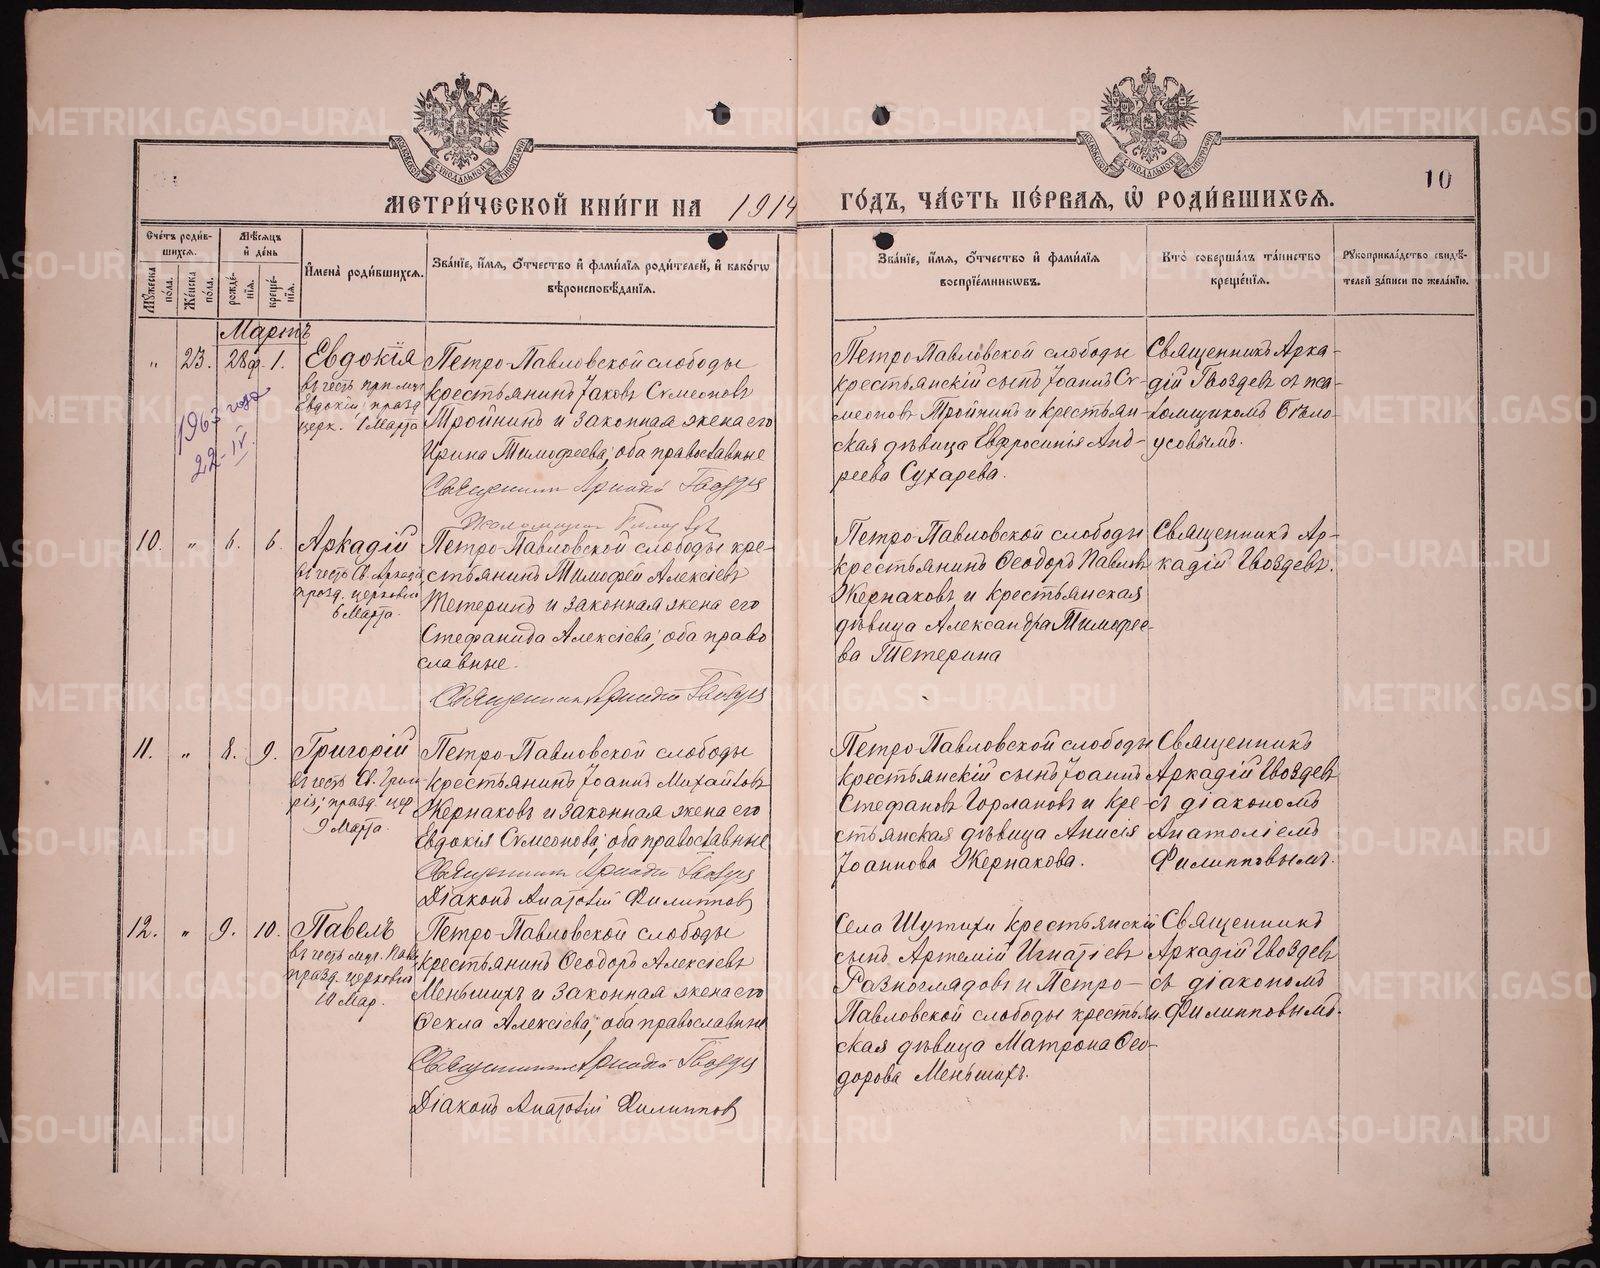 МЕТРИ́ЧЕСКОЙ КНИ́ГИ НА 1914
ГО́ДЪ, ЧА́СТЬ ПЕ́РВАЯ, Ѽ РОДИ́ВШИХСЯ.
10
Сче́тъ роди́в-
шихся.
Му́жеска по́ла.
Же́нска по́ла.
Мѣ́сяцъ
и҆ де́нь
рожде́-
нїя.
креще́-
нїя.
И҆мена̀ роди́вшихся.
Зва́нїе, и҆́мя, ѻ҆́тчество и҆ фами́лїя роди́телей, и҆ како́гѡ
вѣроисповѣ́данїя.
Зва́нїе, и҆́мя, ѻ҆́тчество и҆ фами́лїя
воспрїе́мникѡвъ.
Кто̀ соверша́лъ та́инство
креще́нїя.
Рꙋкоприкла́дство свидѣ́-
телей за́писи по жела́нїю.
Мартъ
" 23. 28ф. 1.
Евдокія
въ честь прп. муч.
Евдокіи; празд.
церк. 1 Марта
1963 года
22-IV.
Петро-Павловской слободы
крестьянинъ Іаковъ Сѵмеоновъ
Тройнинъ и законная жена его
Ирина Тимофеева; оба православные
Священникъ Аркадій Гвоздев
Псаломщикъ
Петро-Павловской слободы
крестьянскій сынъ Іоаннъ Сѵ-
меоновъ Тройнинъ и крестьян-
ская дѣвица Евфросинія Анд-
реева Сухарева.
Священникъ Арка-
дій Гвоздевъ съ пса-
ломщикомъ Бѣло-
усовымъ.
10. " 6. 6.
Аркадій
въ честь Св. Аркадія,
празд. церковію
6 Марта.
Петро-Павловской слободы кре-
стьянинъ Тимофей Алексіевъ
Тетеринъ и законная жена его
Стефанида Алексіева; оба право
славные.
Священникъ Аркадій Гвоздев
Петро-Павловской слободы
крестьянинъ Ѳеодоръ Павловъ
Жернаковъ и крестьянская
дѣвица Александра Тимофее-
ва Тетерина
Священникъ Ар-
кадій Гвоздевъ.
11. " 8. 9.
Григорій
въ честь Св. Григо
рія; празд. цер
9 Марта.
Петро-Павловской слободы
крестьянинъ Іоаннъ Михаиловъ
Жернаковъ и законная жена его
Евдокія Сѵмеонова; оба православные
Священникъ Аркадій Гвоздев
Діаконъ Анатолій Филиппов
Петро-Павловской слободы
крестьянскій сынъ Іоаннъ
Стефановъ Горлановъ и кре-
стьянская дѣвица Анисія
Іоаннова Жернакова.
Священникъ
Аркадій Гвоздевъ
съ діакономъ
Анатоліемъ
Филипповымъ.
12. " 9. 10.
Павелъ
въ честь муч. Павла
празд. церковію
10 Мар.
Петро-Павловской слободы
крестьянинъ Ѳеодоръ Алексіевъ
Меньшихъ и законная жена его
Ѳекла Алексіева; оба православные
Священникъ Аркадій Гвоздев
Діаконъ Анатолій Филиппов
Села Шутихи крестьянскій
сынъ Артемій Игнатіевъ
Разноглядовъ и Петро-
Павловской слободы крестьян
ская дѣвица Матрона Ѳео-
дорова Меньшихъ.
Священникъ
Аркадій Гвоздевъ
съ діакономъ
Филипповымъ.
METRIKI.GASO-URAL.RU